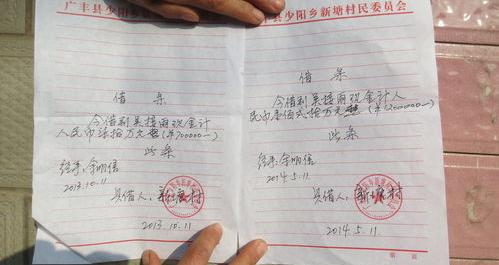 广丰县少阳乡新塘村民委员会
借条
今借到吴接雨现金计
人民币柒拾万元整(¥700000一)
此条
经手:余明信
2013.10.11
具借人:新塘村
2013.10.11
丰县少阳乡新塘村民委员会
借条
今借到吴接雨现金计人
民币壹佰式拾万元整(¥1200000一)
此条
经手:余明信
2014.5.11.
具借人:新塘村
2014.5.11.
第 页